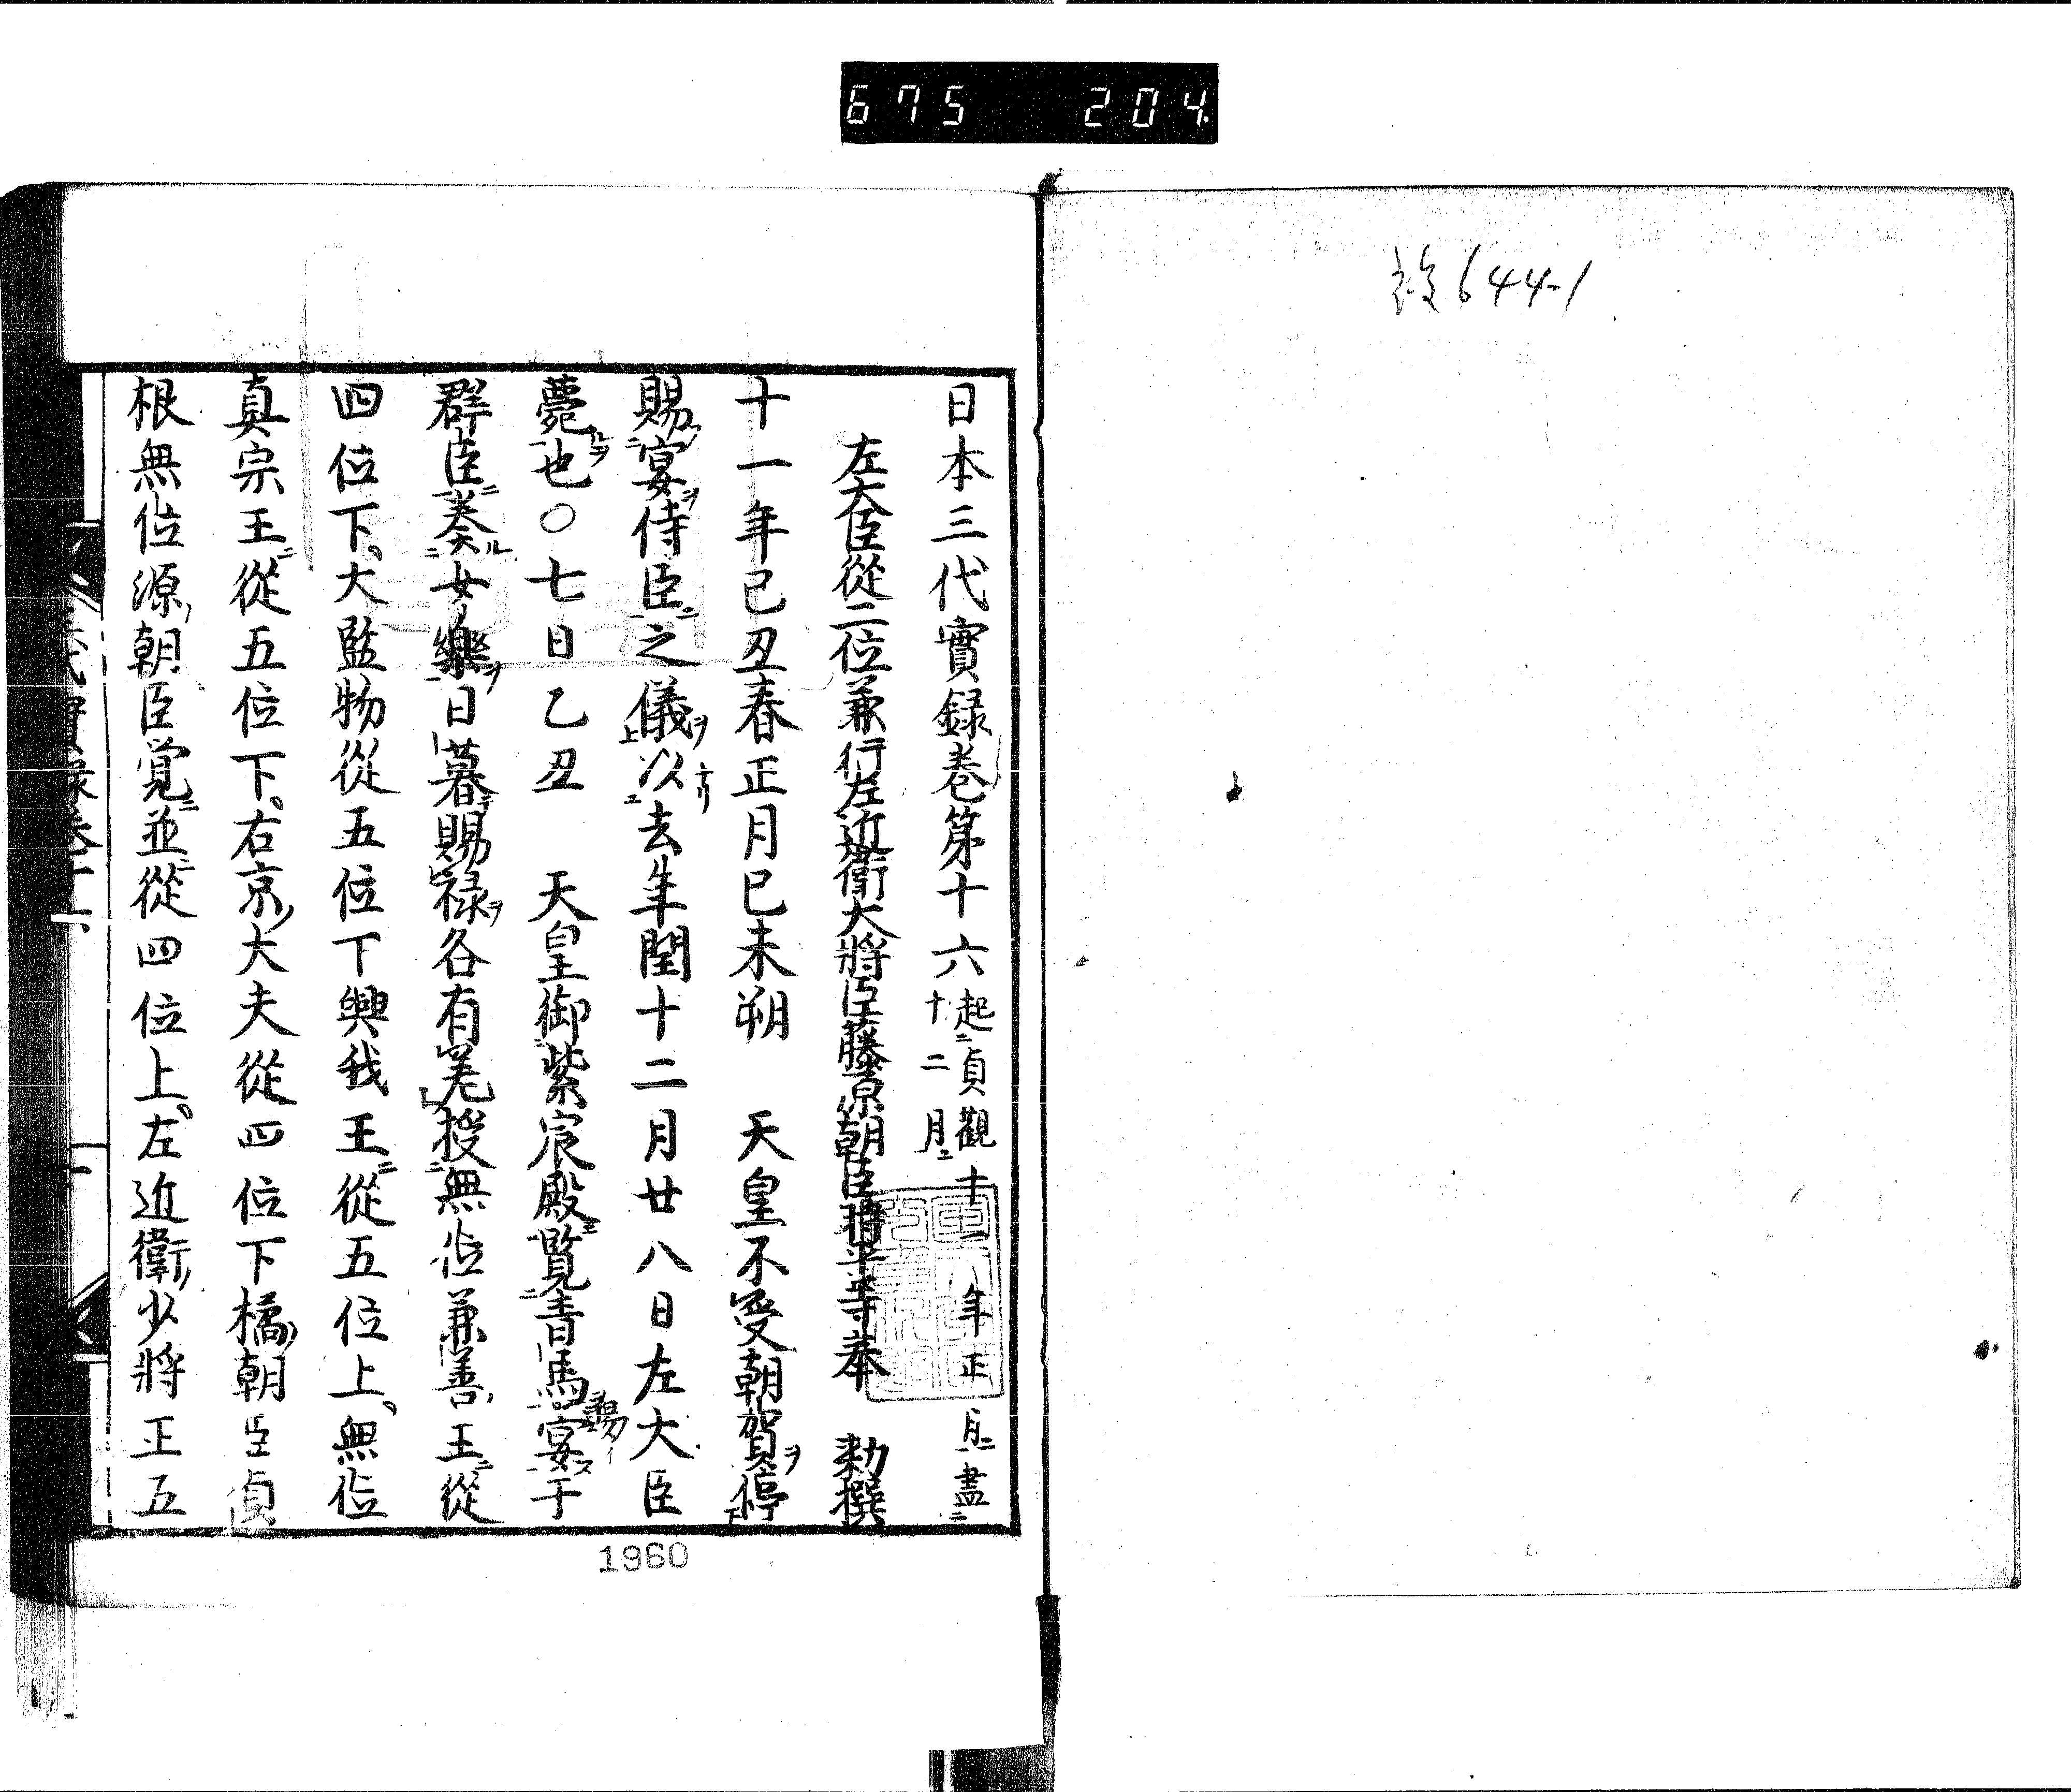 675 204
644-1
日本三代實録巻第十六起貞觀十一年正月盡十二月
左大臣從二位兼行左近衛大將臣藤原朝臣時平等奉 勅撰
十一年己丑春正月己未朔 天皇不受朝賀停
賜宴侍臣之儀以去年閏十二月廿八日左大臣
薨也〇七日乙丑 天皇御紫宸殿覧青馬宴于
賜イ
群臣奏女樂日暮賜禄各有差授無位兼善王從
四位下大監物從五位下興我王從五位上無位
真宗王從五位下右京大夫從四位下橘朝臣貞
根無位源朝臣覚並從四位上左近衛少將正五
1960